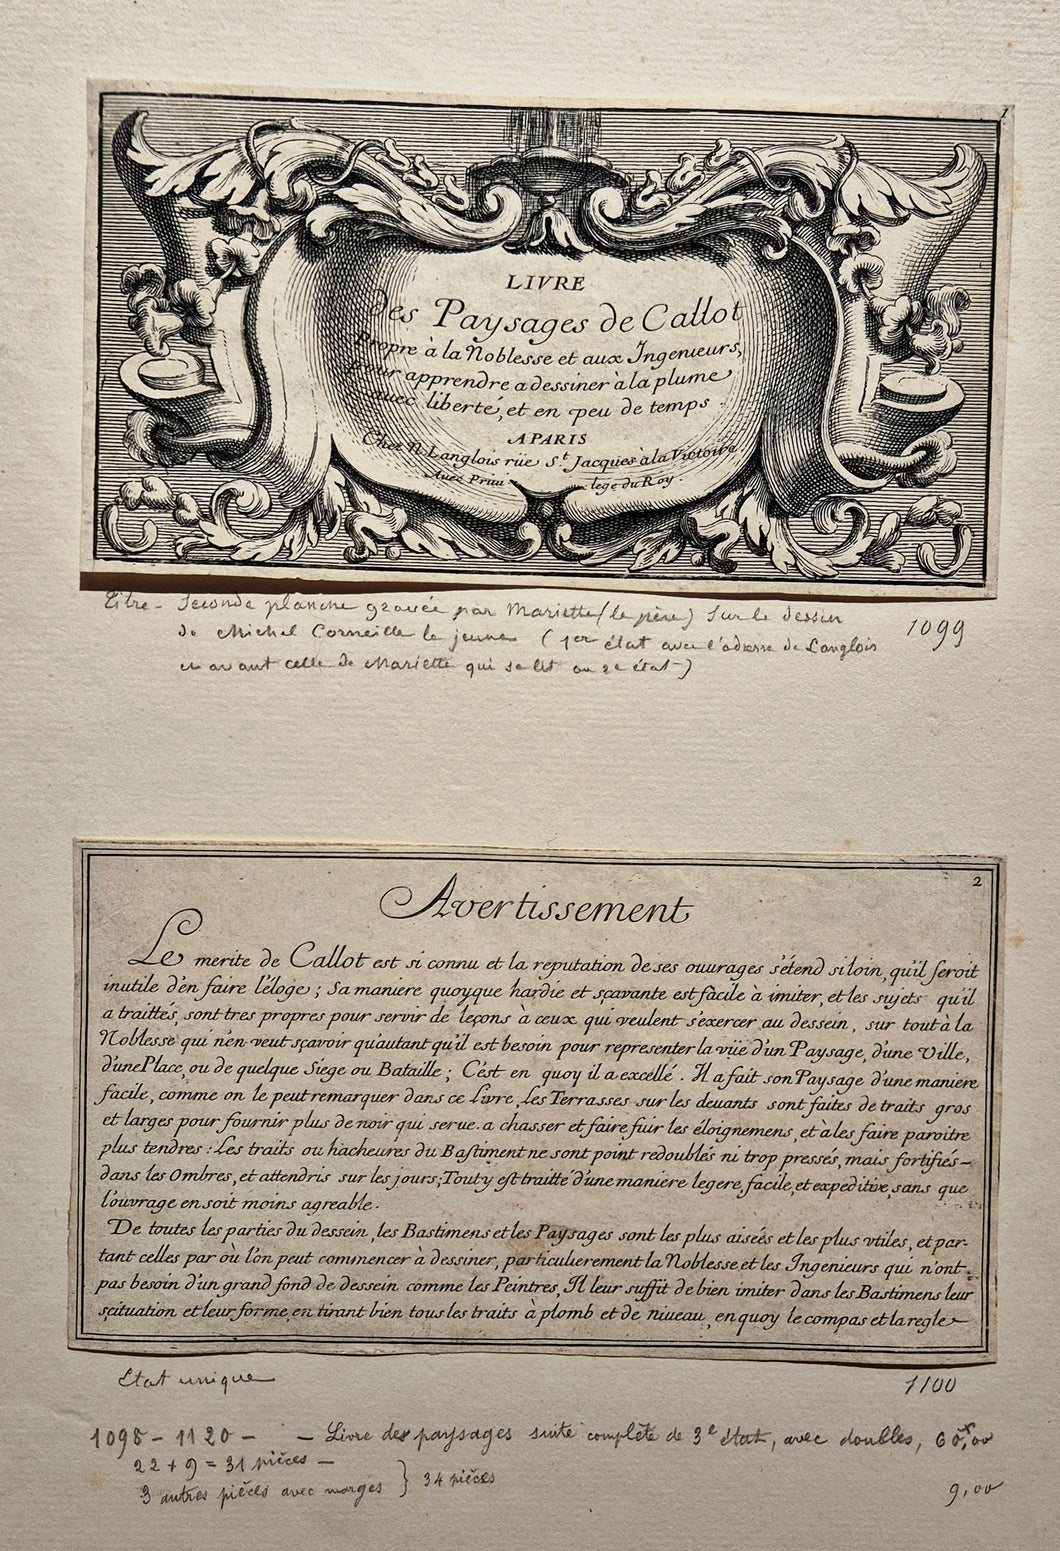 1
LIVRE
des Paysages de Callot
Propre à la Noblesse et aux Ingenieurs,
pour apprendre a dessiner à la plume
avec liberté, et en peu de temps.
A PARIS
Chez N. Langlois rüe St. Jacques à la Victoire
Avec Privilege du Roy.
Titre - Seconde planche gravée par Mariette (le père) sur le dessin
de Michel Corneille le jeune (1er état avec l'adresse de Langlois
et avant celle de Mariette qui se lit au 2e état)
1099
2
Avertissement
Le merite de Callot est si connu et la reputation de ses ouurages s'étend si loin, qu'il seroit
inutile d'en faire l'éloge; Sa maniere quoyque hardie et sçavante est facile à imiter, et les sujets qu'il
a traittés, sont tres propres pour servir de leçons à ceux qui veulent s'exercer au dessein, sur tout à la
Noblesse qui n'en veut sçavoir qu'autant qu'il est besoin pour representer la vüe d'un Paysage, d'une Ville,
d'une Place, ou de quelque Siege ou Bataille; C'est en quoy il a excellé. Il a fait son Paysage d'une maniere
facile, comme on le peut remarquer dans ce Livre, Les Terrasses sur les deuants sont faites de traits gros
et larges pour fournir plus de noir qui serue a chasser et faire fuir les éloignemens, et à les faire paroitre
plus tendres: Les traits ou hacheures du Bastiment ne sont point redoublés ni trop pressés, mais fortifiés
dans les Ombres, et attendris sur les jours; Tout y est traitté d'une maniere legere, facile, et expeditive, sans que
l'ouvrage en soit moins agreable.
De toutes les parties du dessein, les Bastimens et les Paysages sont les plus aisées et les plus vtiles, et par-
tant celles par où l'on peut commencer à dessiner, particulierement la Noblesse et les Ingenieurs qui n'ont
pas besoin d'un grand fond de dessein comme les Peintres, Il leur suffit de bien imiter dans les Bastimens leur
scituation et leur forme, en tirant bien tous les traits à plomb et de niueau, en quoy le compas et la regle
Etat unique
1100
1098 - 1120 - - Livre des paysages suite complète de 3e état, avec doubles, 60,00
22 + 9 = 31 pièces -
3 autres pièces avec marges } 34 pièces
9,00